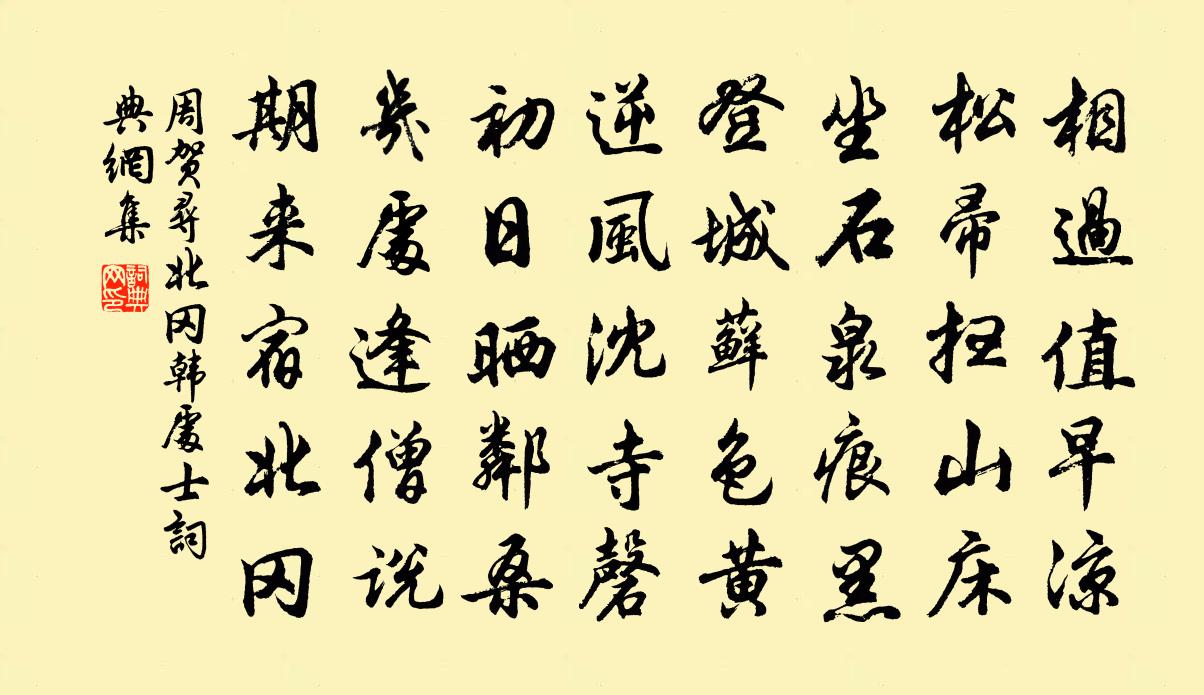 相過值早涼
松帚扫山床
坐石泉痕黑
登城蘚色黄
逆風沈寺磬
初日晒鄰桑
幾處逢僧説
期来宿北冈
周贺尋北冈韩處士詞
典網集
詞典網印